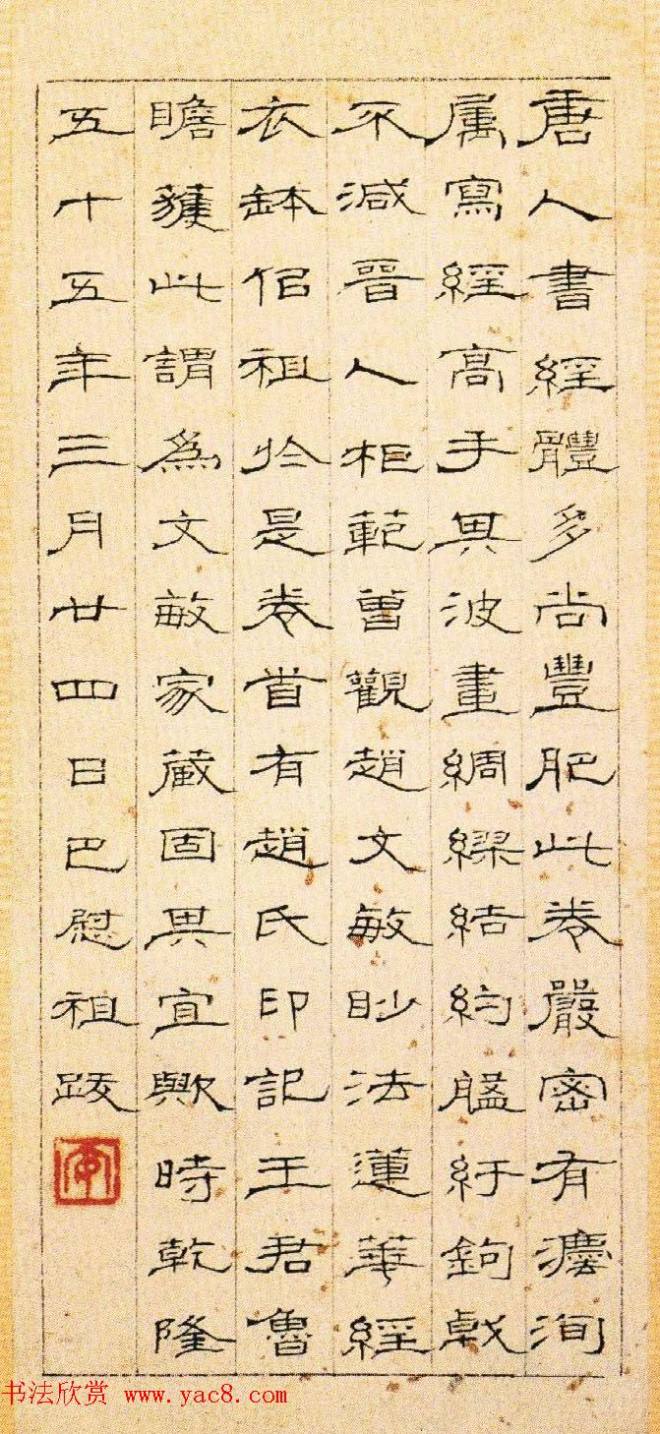 唐人書經體多尚豐肥此卷嚴密有灋洵
属寫經高手其波畫綢繆結約盤紆鉤戟
不減晉人柜範曾觀趙文敏眇法蓮華經
衣鉢佀祖於是卷首有趙氏印記王君魯
瞻獲此謂為文敏家藏固其宜歟時乾隆
五十五年三月廿四日巴慰祖跋
书法欣赏 www.yac8.com